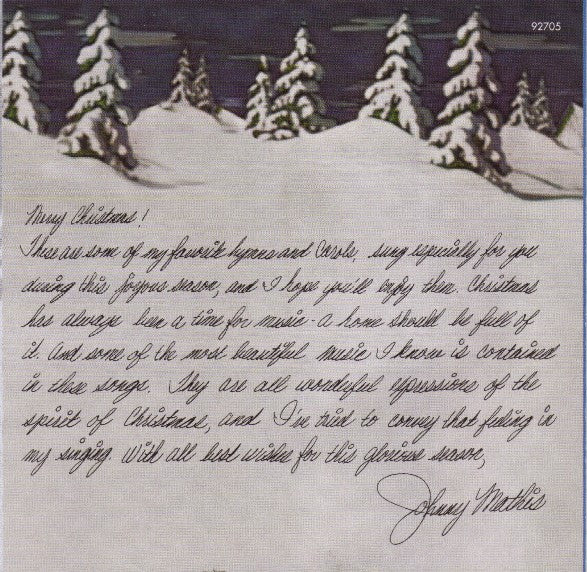 92705
Merry Christmas!
These are some of my favorite hymns and Carols, sung especially for you
during this Joyous season, and I hope you'll enjoy them. Christmas
has always been a time for music - a home should be full of
it. And some of the most beautiful music I know is contained
in these songs. They are all wonderful expressions of the
spirit of Christmas, and I've tried to convey that feeling in
my singing With all best wishes for this glorious season,
Johnny Mathis